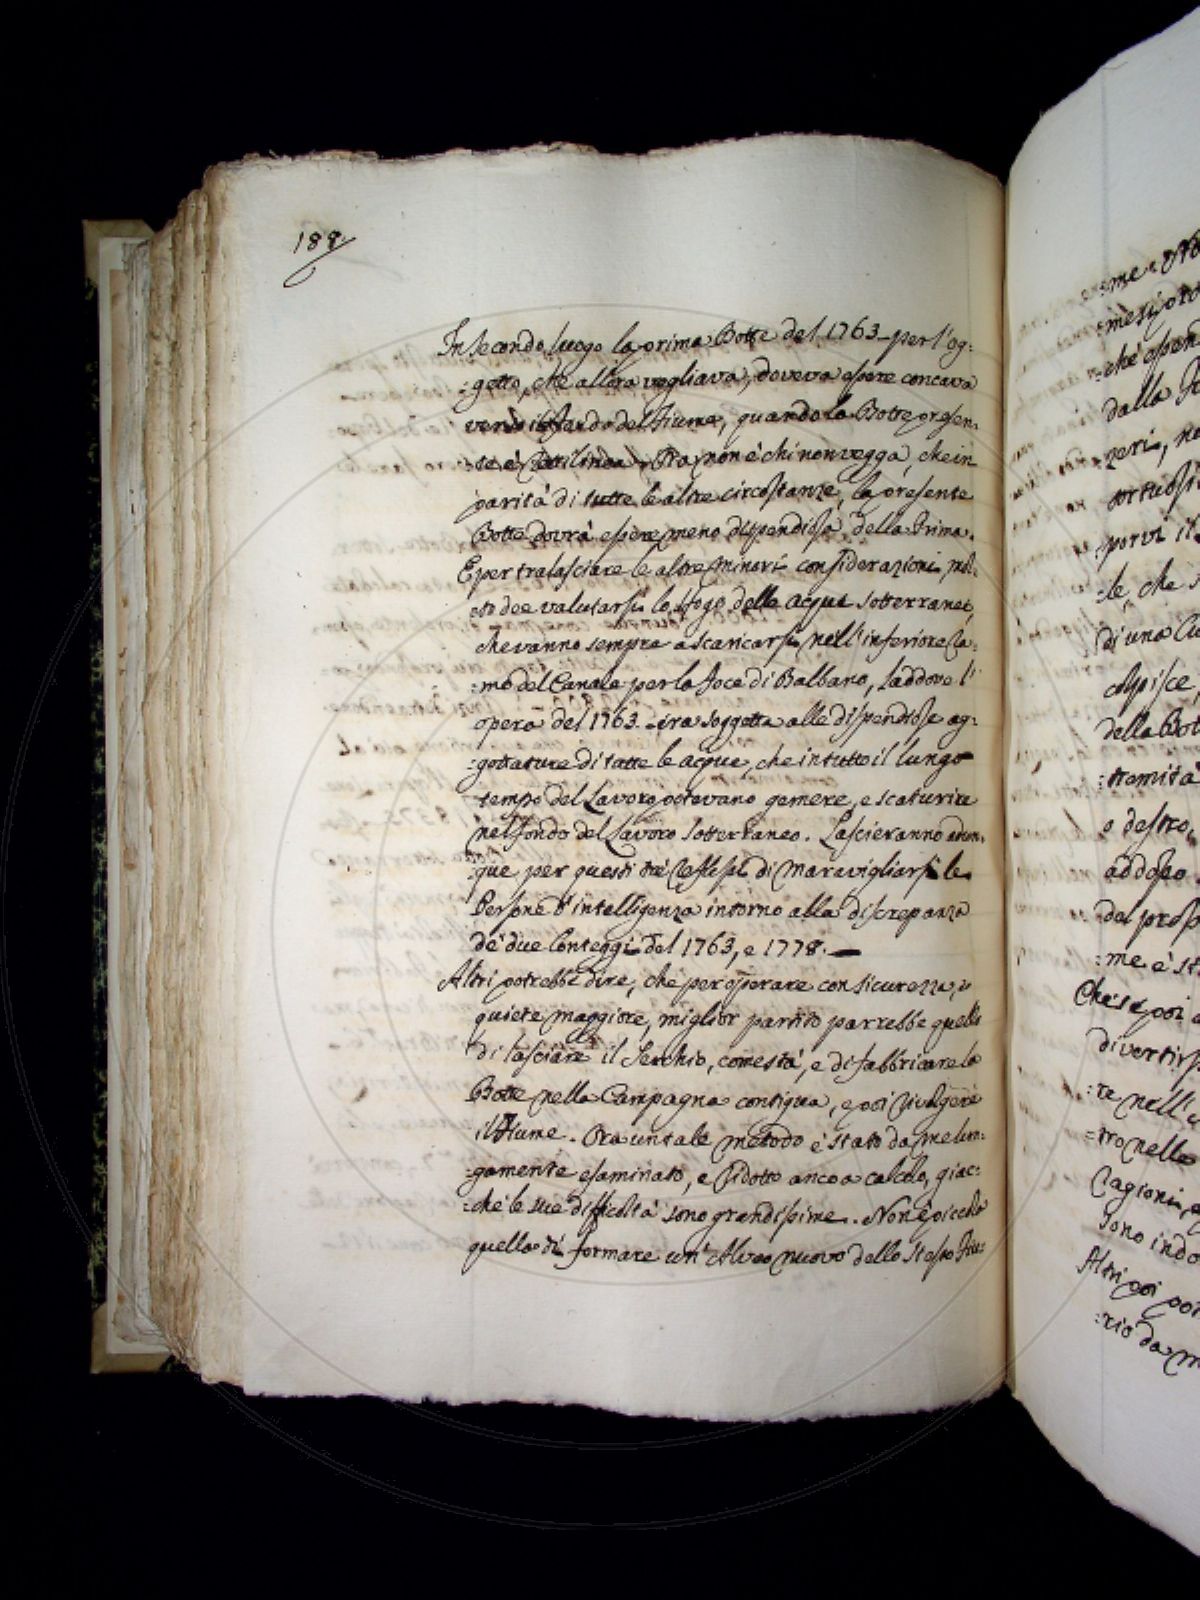 188
In secondo luogo la prima Botte del 1763 per l'og:
:getto, che allora vegliava, doveva essere concava
verso il fondo del Fiume, quando la Botte presen:
:te è Rettilinea. Ora non è chi non vegga, che in
parità di tutte le altre circostanze, la presente
Botte dovrà essere meno dispendiosa della Prima.
E per tralasciare le altre minori considerazioni, mol:
:to dee valutarsi lo sfogo delle acque sotterranee,
che vanno sempre a scaricarsi nell'inferiore Ra:
:mo del Canale per la Foce di Balbano, laddove l'
opera del 1763. era soggetta alle dispendiose ag:
:gottature di tutte le acque, che in tutto il lungo
tempo del Lavoro potevano gemere, e scaturire
nel fondo del Lavoro sotterraneo. Lascieranno adun:
:que per questi tre Riflessi di maravigliarsi le
Persone d'intelligenza intorno alla discrepanza
de' due Conteggi del 1763, e 1778.
Altri potrebbe dire, che per operare con sicurezza, e
quiete maggiore, miglior partito parrebbe quello
di lasciare il Serchio, come stà, e di fabbricare la
Botte nella Campagna contigua, e poi rivolgere
il Fiume. Ora un tale metodo è stato da me lun:
:gamente esaminato, e ridotto ancora a calcolo, giac:
:chè le sue difficoltà sono grandissime. Non è piccola
quella di formare un' Alveo nuovo dello stesso Fiu:
:me
dalla
:le, che
di una
della Bot
:tremità
o destro,
addosso
:me è st
Che se poi
divertirs
:re nell'
:tro nelle
ragioni, e
sono indo
Altri poi
:rio da m